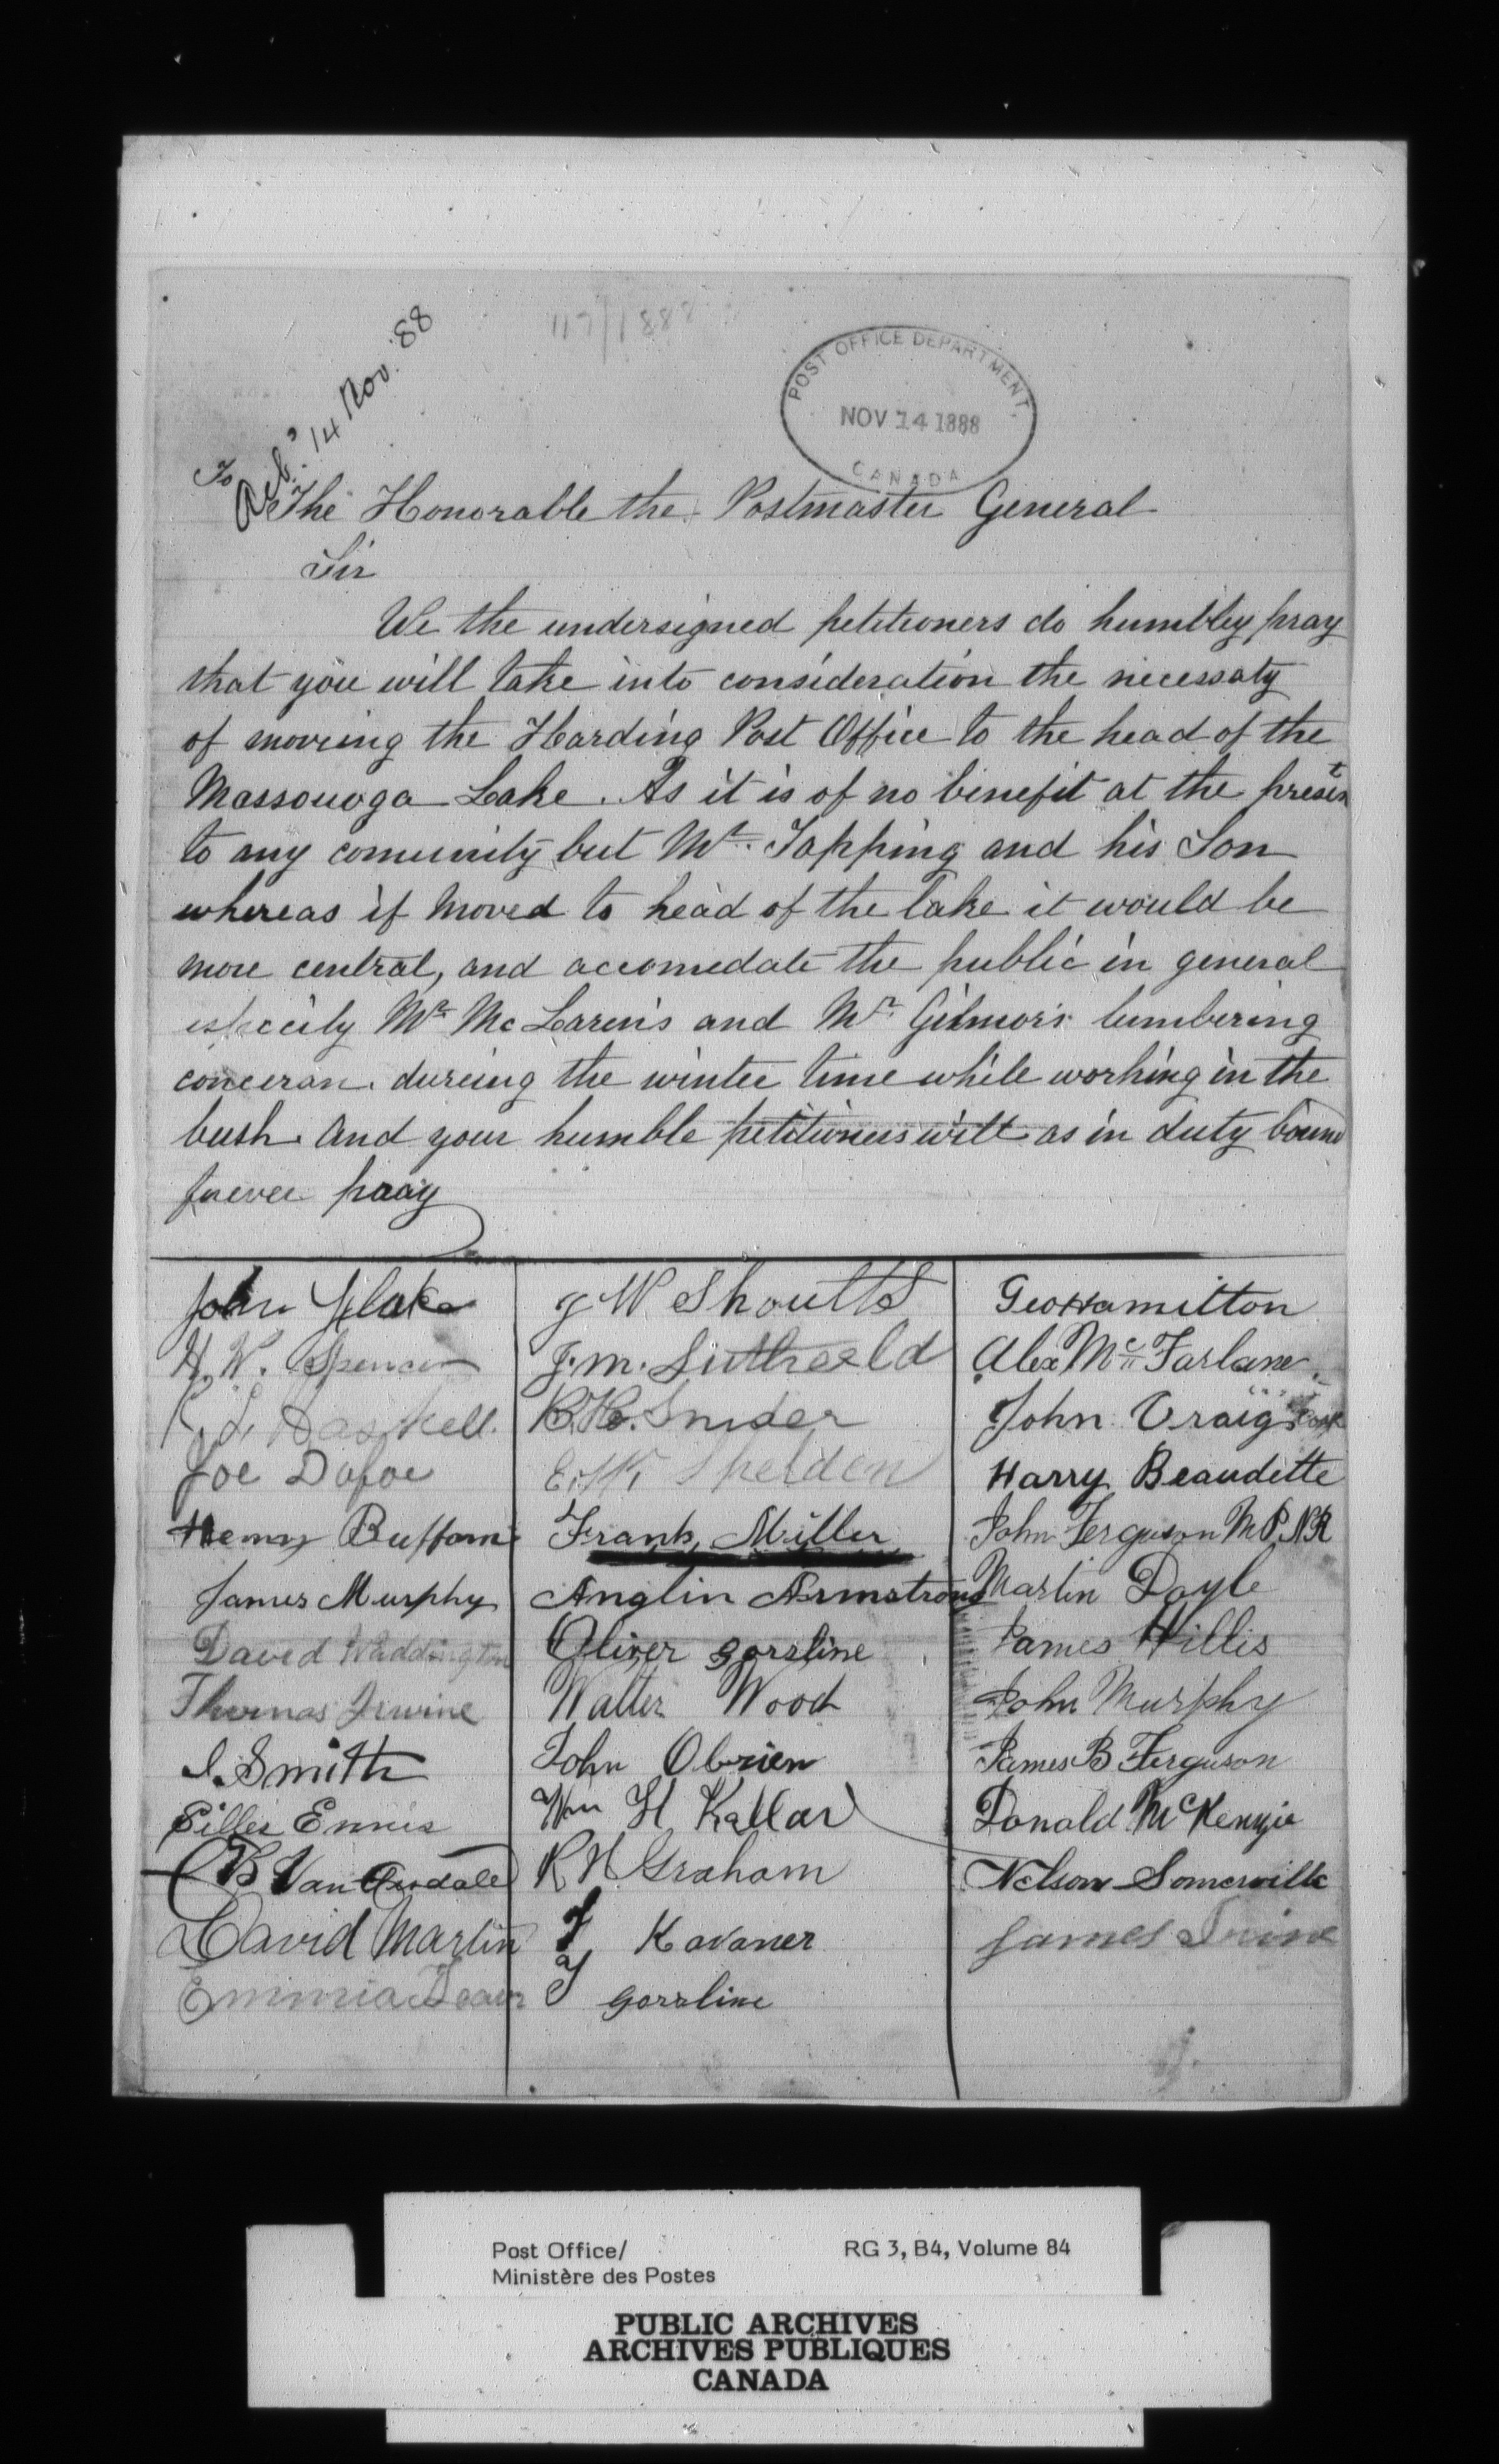 117/1888
Ack'd 14 Nov. 88
POST OFFICE DEPARTMENT,
NOV 14 1888
CANADA
To
The Honorable the Postmaster General
Sir
We the undersigned petitioners do humbley pray
that you will take into consideration the necessaty
of moveing the Harding Post Office to the head of the
Massouoga Lake. As it is of no benefit at the present
to any comunity but Mr. Tapping and his Son
whereas if moved to head of the lake it would be
more central, and accomedate the public in general
especily Mr McLaren's and Mr Gilmors lumbering
conceran dureing the winter time while working in the
bush. And your humble petitioners will as in duty bound
forever pray
John
H. W. Spencer
R. L. Haskell.
Joe Dafoe
Henry Buffam
James Murphy
David Waddington
Thomas Irwine
S. Smith
Ennis
B Van
David Martin
J W Shoultts
J. M.
B. H. Snider
Shelden
Frank Miller
Anglin Armstrong
Oliver gorsline
Walter Wood
John Obrien
Wm H Kellar
R N Graham
J Kavaner
J gorsline
Geo Hamilton
Alex Mc Farlane
John Craig
Harry Beaudette
John Ferguson M P NR
Martin Doyle
James Willis
John Murphy
James B Ferguson
Donald McKenzie
Nelson Somerville
James
Post Office/
Ministère des Postes
RG 3, B4, Volume 84
PUBLIC ARCHIVES
ARCHIVES PUBLIQUES
CANADA